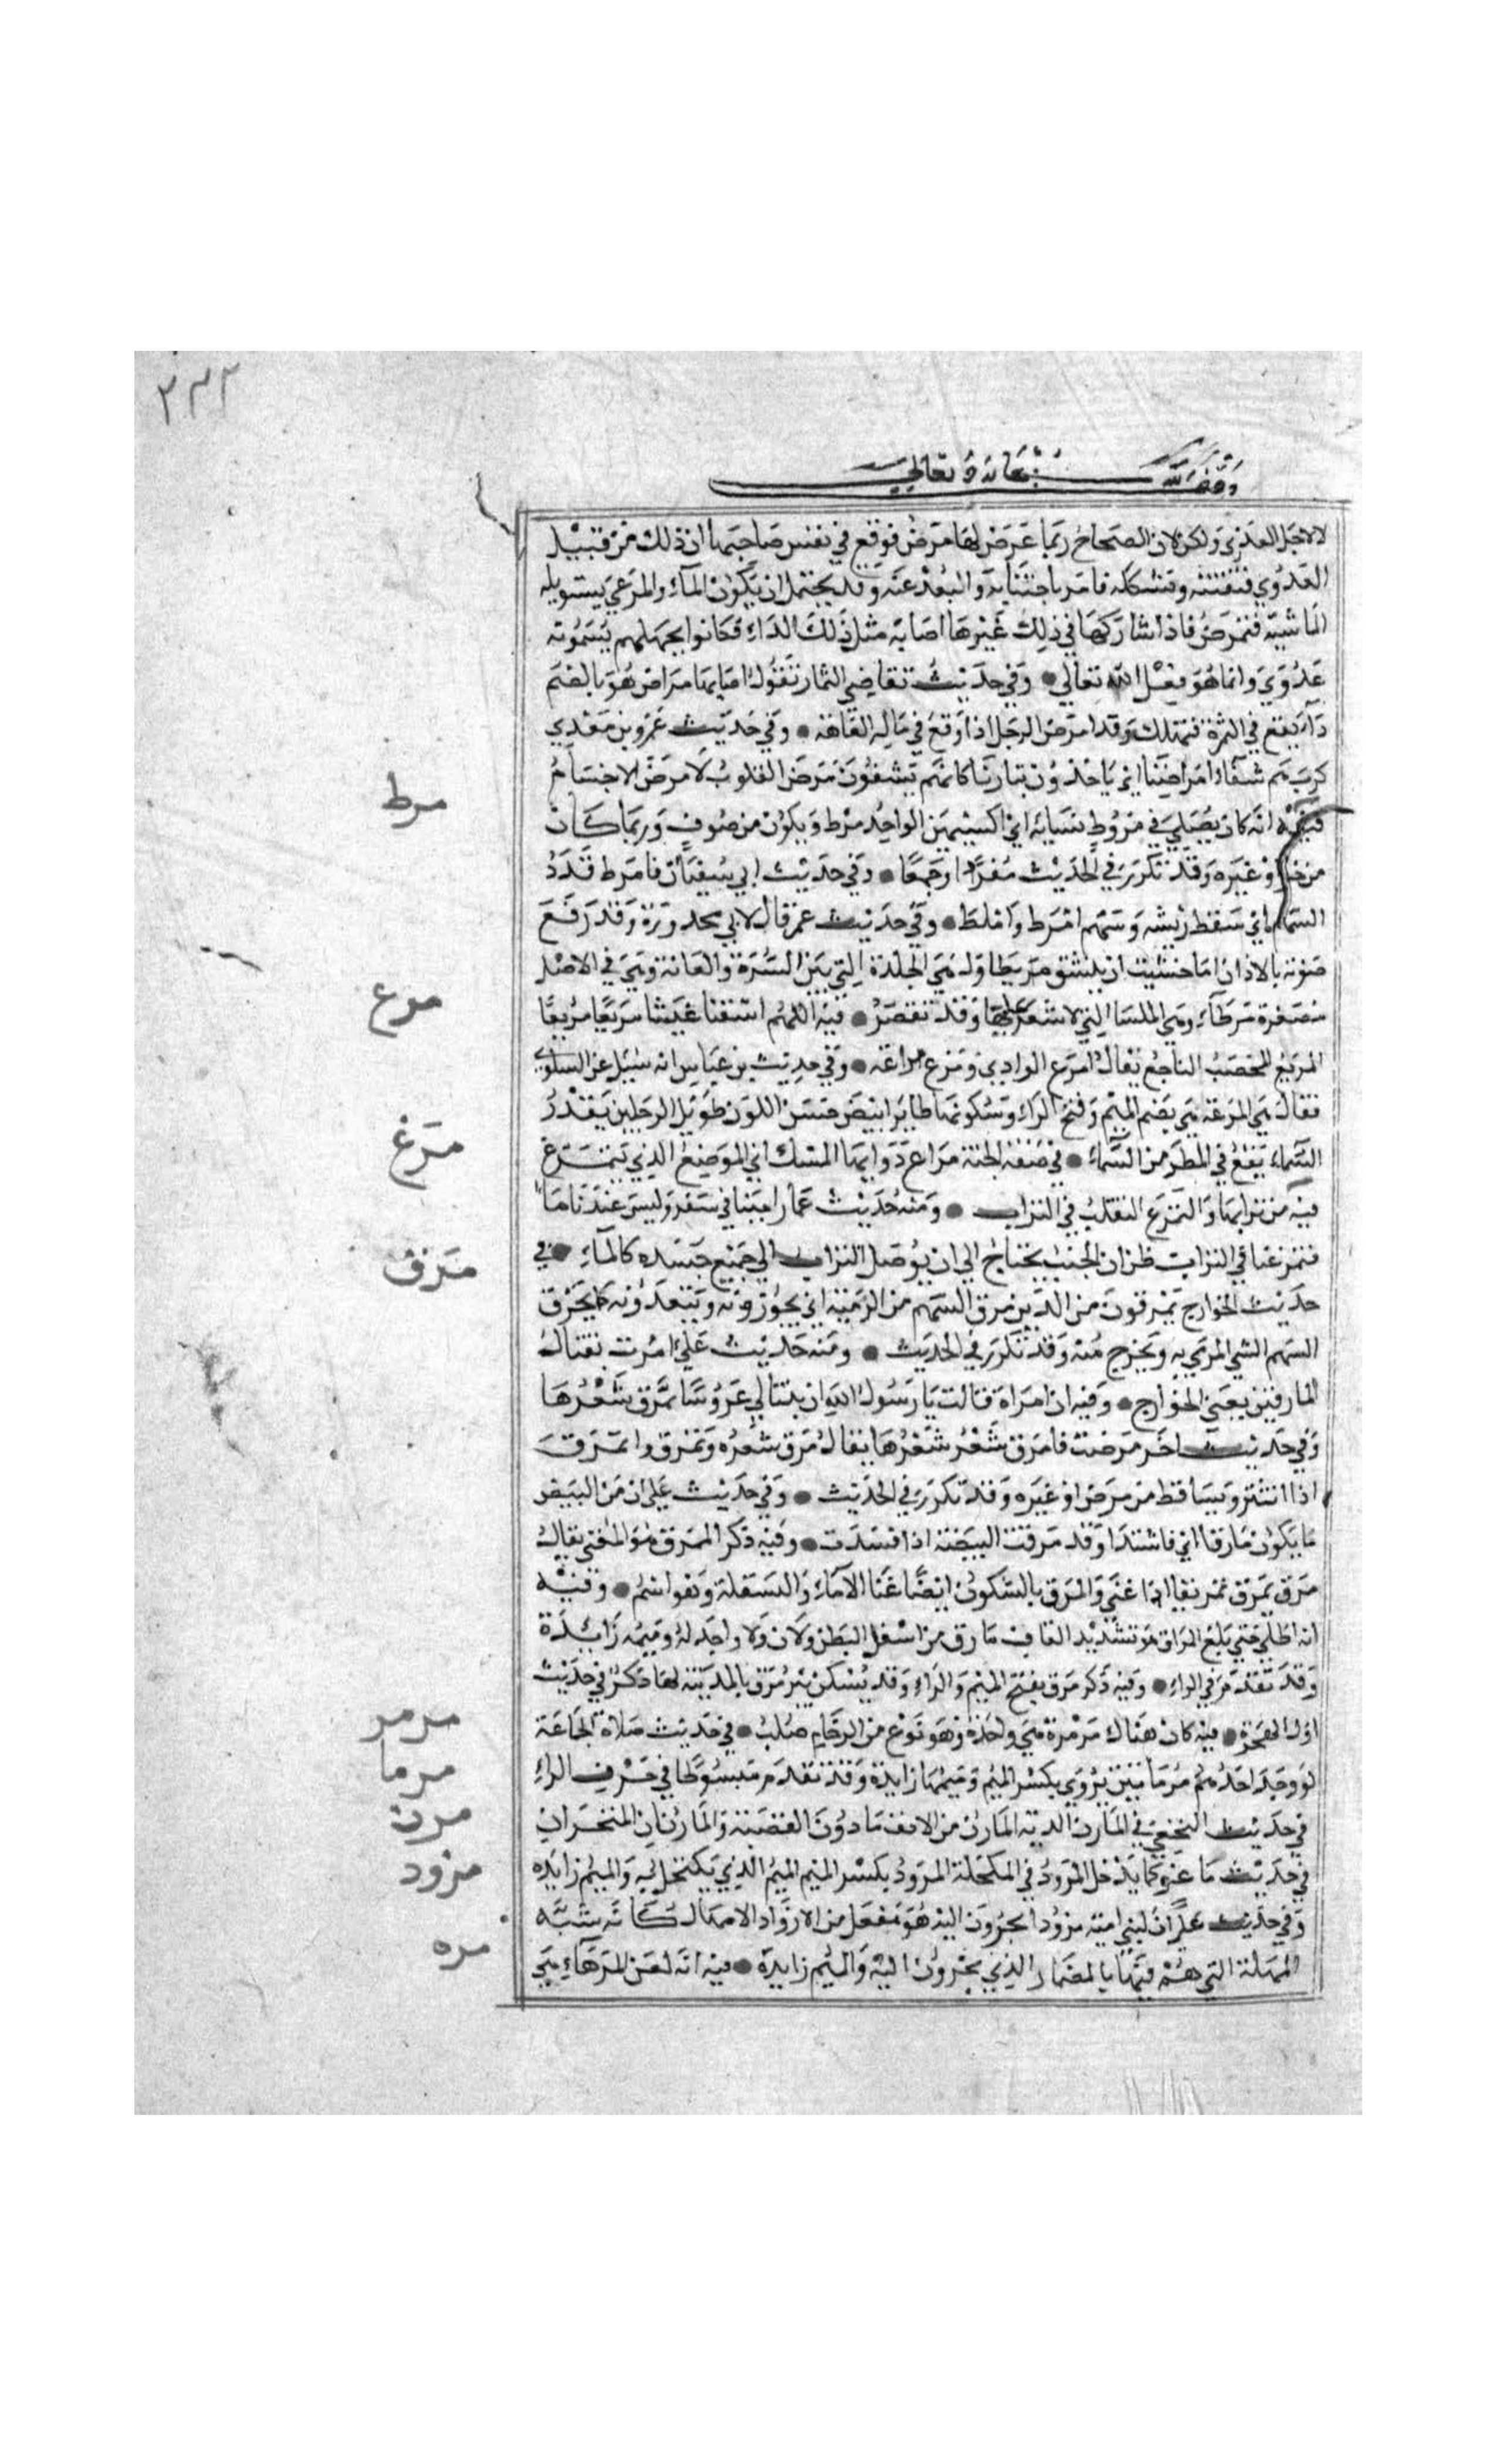 ٢٣٢
وقف لله سبحانه وتعالى
لا لاجل العدوى ولكن لان الصحاح ربما عرض لها مرض فوقع في نفس صاحبها ان ذلك من قبيل
العدوي فتفتنه وتشككه فامر باجتنابه والبعد عنه وقد يحتمل ان يكون المآء والمرعي يستوبله
الماشية فتمرض فاذا شاركها في ذلك غيرها اصابه مثل ذلك الدآء فكانوا بجهلهم يسمونه
عدوي وانما هو فعل الله تعالي وفي حديث تقاضي الثمار تقول اصابها مراض هو بالضم
دآء يقع في الثمرة فتهلك وقد امرض الرجل اذا وقع في ماله العاهة وفي حديث عمرو بن معدي
كرب هم شفآء امراضنا اي ياخذون بثارنا كانهم يشفون مرض القلوب لا مرض الاجسام
مرط
فيه انه كان يصلي في مروط نسايه اي اكسيتهن الواحد مرط ويكون من صوف وربما كان
من خز او غيره وقد تكرر في الحديث مفردا وجمعا وفي حديث ابي سفيان فامرط قذذ
السهام اي سقط ريشه وسهم امرط واملط وفي حديث عمر قال لابي محذورة وقد رفع
صوته بالاذان اما خشيت ان ينشق مريطاوك هي الجلدة التي بين السرة والعانة وهي في الاصل
مرع
مصغرة مرطآء وهي الملسا التي لا شعر عليها وقد تقصر فيه اللهم اسقنا غيثا مريعا مربعا
المريع المخصب الناجع يقال امرع الوادي ومرع مراعة وفي حديث بن عباس انه سيل عن السلوي
فقال هي المرعة هي بضم الميم وفتح الرآء وسكونها طاير ابيض حسن اللون طويل الرجلين بقدر
مرغ
السماء يقع في المطر من السمآء في صفة الجنة مراغ دوابها المسك اي الموضع الذي يتمرغ
فيه من ترابها والتمرغ التقلب في التراب ومنه حديث عمار اجنبنا في سفر وليس عندنا مآء
مرق
فتمرغنا في التراب ظن ان الجنب يحتاج الي ان يوصل التراب الي جميع جسده كالمآء في
حديث الخوارج يمرقون من الدين مرق السهم من الرمية اي يجوزونه ويتعدونه كما يخرق
السهم الشي المرمي به ويخرج منه وقد تكرر في الحديث ومنه حديث علي امرت بقتال
المارقين يعني الخوارج وفيه ان امراة قالت يا رسول الله ان بنتا لي عروسا تمرق شعرها
وفي حديث اخر مرضت فامرق شعر شعرها يقال مرق شعره وتمرق وامرق
اذا انتثر وتساقط من مرض او غيره وقد تكرر في الحديث وفي حديث علي ان من البيض
ما يكون مارقا اي فاسدا وقد مرقت البيضة اذا فسدت وفيه ذكر الممرق هو المغني يقال
مرق يمرق تمريقا اذا غني والمرق بالسكون ايضا غنا الامآء والسفلة وهو اسم وفيه
انه اطلي حتي بلغ المراق هو تشديد القاف ما رق من اسفل البطن ولان ولا واحد له وميمه زائدة
وقد تقدم في الراء وفيه ذكر مرق بفتح الميم والراء وقد يسكن بئر مرق بالمدينة لها ذكر في حديث
مرمر
اول الهجرة فيه كان هناك مرمرة هي واحدة وهو نوع من الرخام صلب في حديث صلاة الجماعة
مرما
لو وجد احدهم مرماتين يروي بكسر الميم وميمها زايدة وقد تقدم مبسوطا في حرف الراء
مرن
في حديث النخعي في المارن الدية المارن من الانف ما دون القصبة والمارنان المنخران
مرود
في حديث ماعز كما يدخل المرود في المكحلة المرود بكسر الميم الميم الذي يكتحل به والميم زايده
وفي حديث علي ان لبني امية مرودا يجرون اليه هو مفعل من الارواد الامهال كانه شبه
مره
المهلة التي هم فيها بالمضمار الذي يجرون اليه والميم زايدة فيه انه لعن المرهآء هي